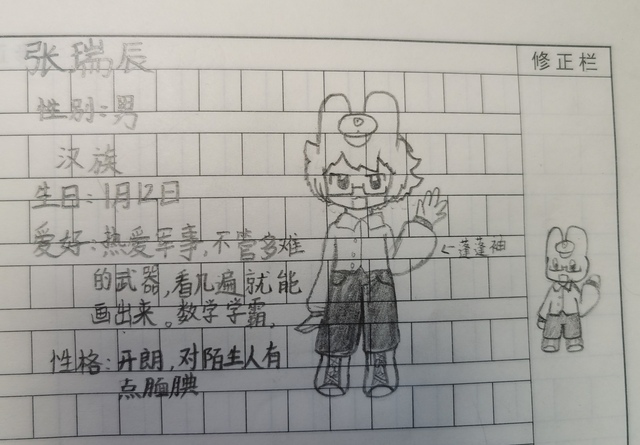 张瑞辰
修正栏
性别:男
汉族
生日:1月12日
爱好:热爱军事,不管多难
←蓬蓬袖
的武器,看几遍就能
画出来。数学学霸,
性格:开朗,对陌生人有
点腼腆